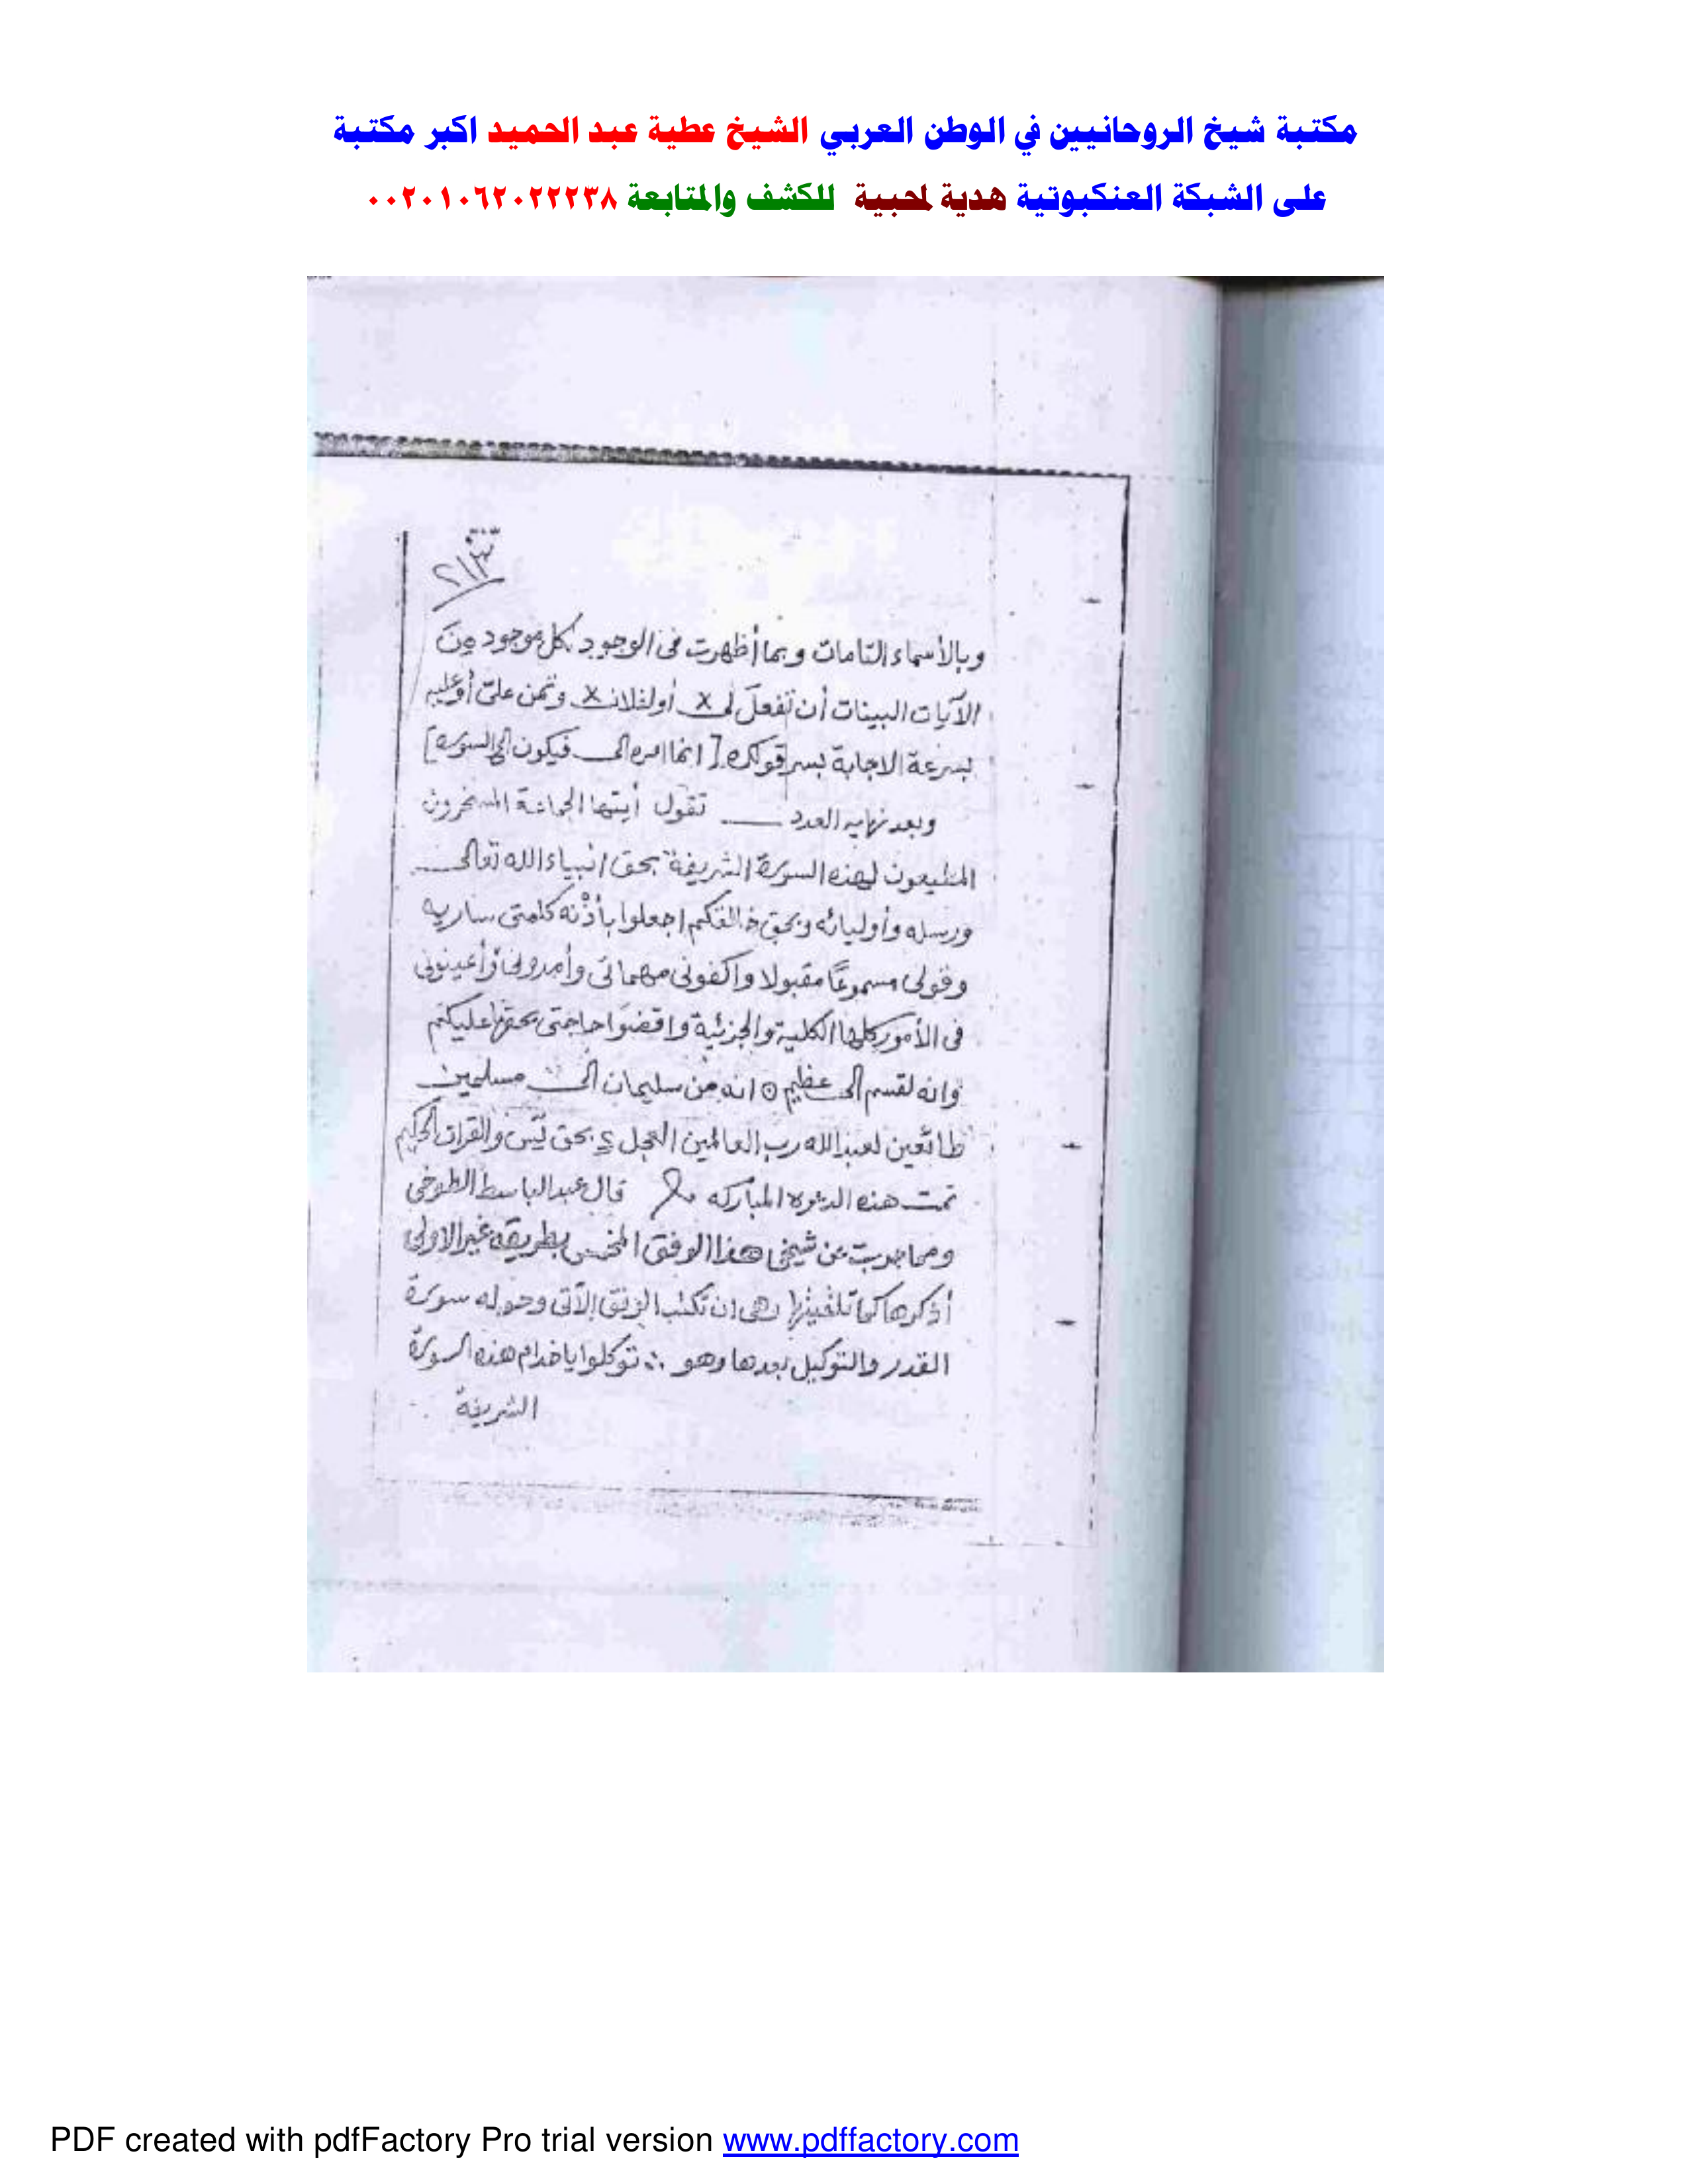 مكتبة شيخ الروحانيين في الوطن العربي الشيخ عطية عبد الحميد اكبر مكتبة
على الشبكة العنكبوتية هدية لمحبية للكشف والمتابعة ٠٠٢٠١٠٦٢٠٢٢٢٣٨
وبالأسماء التامات وبما أظهرت فى الوجود لكل موجود من
الآيات البينات أن تفعل لى × أو لفلان × وتمن علىّ أو عليه
بسرعة الاجابة بسر قولك [ انما امره الى فيكون الى السورة]
وبعد نهايه العدد ـــ تقول أيتها الجماعة المسخرون
المطيعون لهذه السورة الشريفة بحق انبياء الله تعالى
ورسله وأوليائه وبحق خالقكم اجعلوا بأذنه كلمتى ساريه
وقولى مسموعًا مقبولا واكفونى مهماتى وأمدونى وأعينونى
فى الأمور كلها الكلية والجزئية واقضوا حاجتى بحقها عليكم
وانه لقسم الى عظيم ⊙ انه من سليمان الى مسلمين
طائعين لعبد الله رب العالمين العجل ٢ بحق يس والقران الحكيم
تمت هذه الدعوه المباركه قال عبد الباسط الطوخى
ومما جربت عن شيخى هذا الوفق المخمس بطريقه غير الاولى
أذكرها كما تلقيتها وهى ان تكتب الوفق الآتى وحوله سورة
القدر والتوكيل بعدها وهو ∴ توكلوا يا خدام هذه السورة
الشريفة
PDF created with pdfFactory Pro trial version www.pdffactory.com